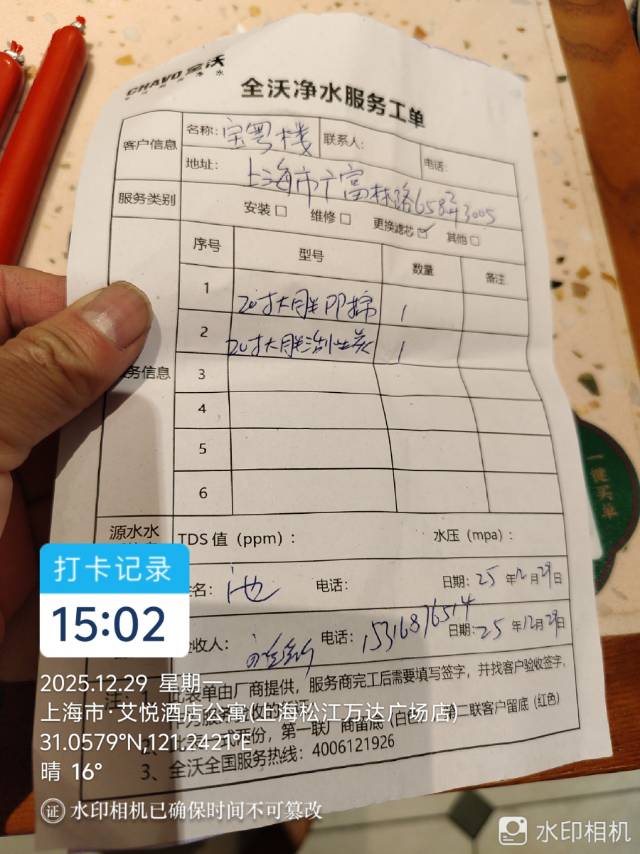 CHAVO 全沃
全沃净水服务工单
客户信息 名称: 宝粤楼 联系人: 电话:
地址: 上海市广富林路658弄3005
服务类别 安装□ 维修□ 更换滤芯☑ 其他□
序号 型号 数量 备注
1 20寸大胖PP棉 1
2 20寸大胖活性炭 1
务信息 3
4
5
6
源水水 TDS 值 (ppm): 水压 (mpa):
姓名: 池 电话: 日期: 25 年 12 月 29 日
收人: 电话: 15316876514 日期: 25 年 12 月 29 日
注: 1、此表单由厂商提供，服务商完工后需要填写签字，并找客户验收签字，
第一联厂商留底 (白色) 二联客户留底 (红色)
3、全沃全国服务热线: 4006121926
一键买单
打卡记录
15:02
2025.12.29 星期一
上海市·艾悦酒店公寓(上海松江万达广场店)
31.0579°N,121.2421°E
晴 16°
证 水印相机已确保时间不可篡改
水印相机